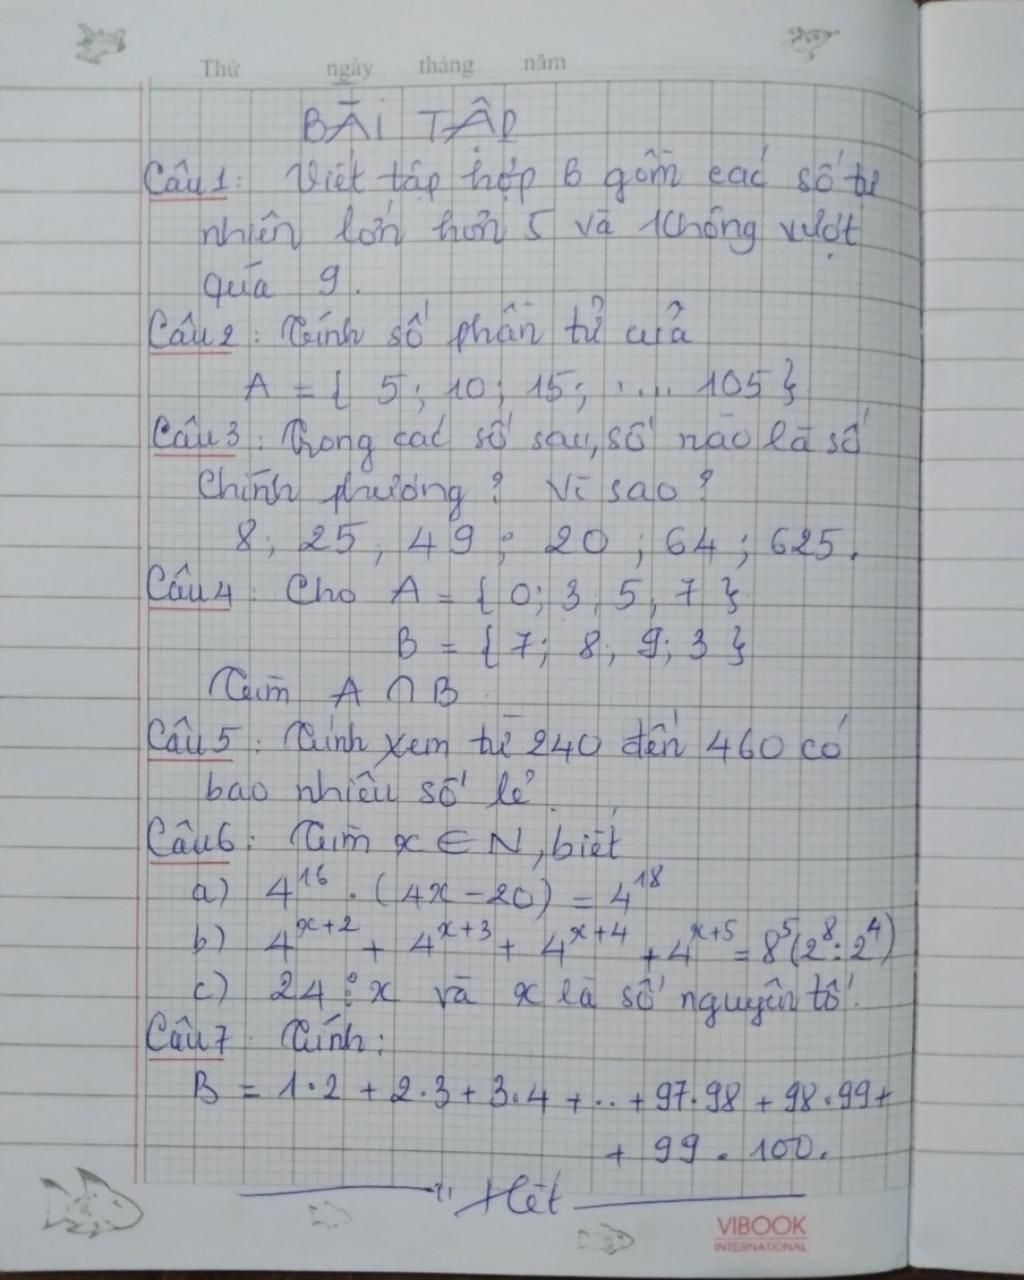 Thứ ngày tháng năm
BÀI TẬP
Câu 1: Viết tập hợp B gồm các số tự
nhiên lớn hơn 5 và không vượt
quá 9.
Câu 2: Tính số phần tử của
A = { 5; 10; 15; .... 105 }
Câu 3: Trong các số sau, số nào là số
chính phương? Vì sao?
8; 25, 49; 20; 64; 625.
Câu 4: Cho A = { 0; 3, 5, 7 }
B = { 7; 8, 9; 3 }
Tìm A ∩ B
Câu 5: Tính xem từ 240 đến 460 có
bao nhiêu số lẻ.
Câu 6: Tìm x ∈ N, biết
a) 4¹⁶ . (4x - 20) = 4¹⁸
b) 4ˣ⁺² + 4ˣ⁺³ + 4ˣ⁺⁴ + 4ˣ⁺⁵ = 8⁵(2⁸ : 2⁴)
c) 24 ⋮ x và x là số nguyên tố.
Câu 7: Tính:
B = 1.2 + 2.3 + 3.4 + .. + 97.98 + 98.99 +
+ 99 . 100.
" Hết
VIBOOK
INTERNATIONAL